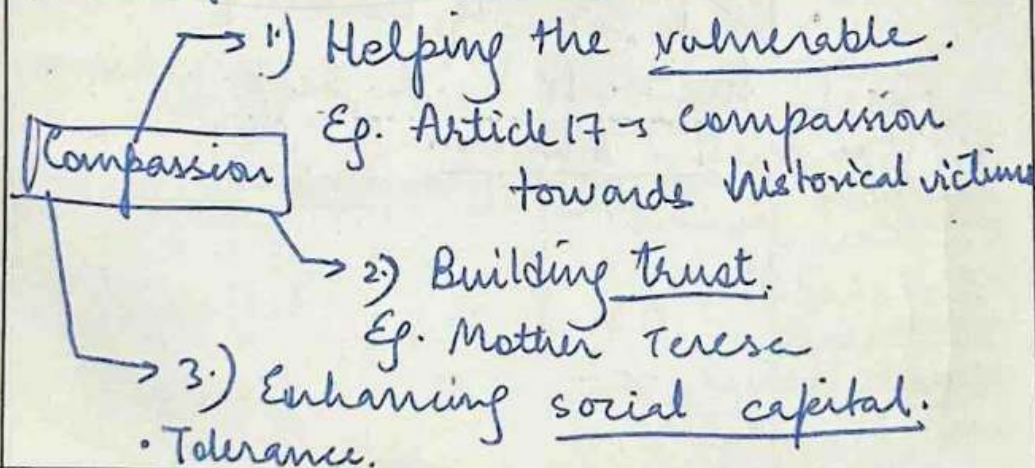 1.) Helping the vulnerable.
Compassion
Eg. Article 17 → Compassion
towards historical victims
2.) Building trust.
Eg. Mother Teresa
3.) Enhancing social capital.
• Tolerance.